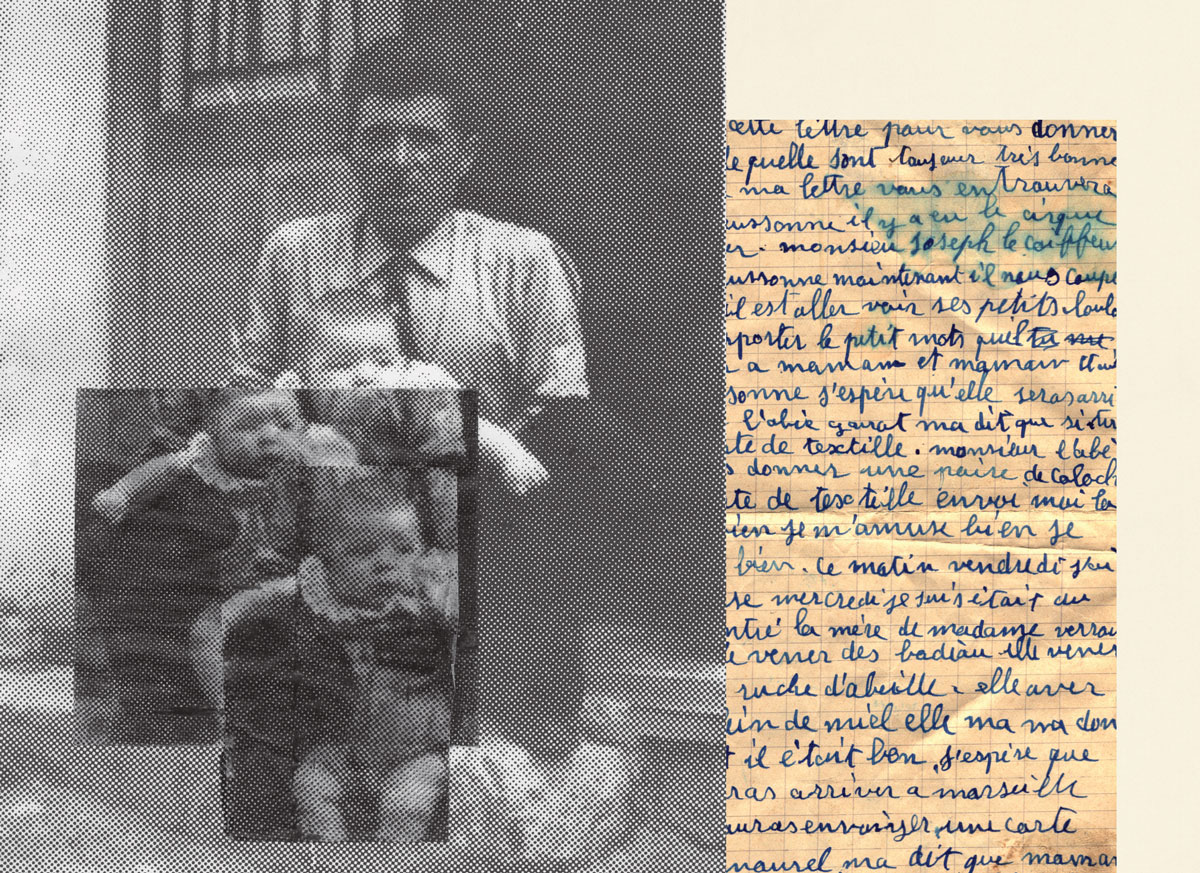 cette lettre pour vous donner
quelle sont toujour très bonne
ma lettre vous en trouvera
ussonne il y a eu le cirque
er. monsieu Joseph le coiffeur
ussonne maintenant il nous coupe
il est aller voir ses petits loulo
porter le petit mots quil
a maman et mamain
sonne j'espère qu'elle seras arri
l'abie gairat ma dit que si
te de textille. monsieur l'abé
donner une paire de Caloch
te de textille envoi moi la
ien je m'amuse bien je
bien. Ce matin vendredi j'ai
se mercredi je suis était au
ntré la mère de madame verrou
vener des badiau elle vener
ruche d'abeille. elle aver
in de miel elle ma na don
il était bon, j'espère que
ras arriver a marseille
auras envoiyer une carte
maurel ma dit que maman